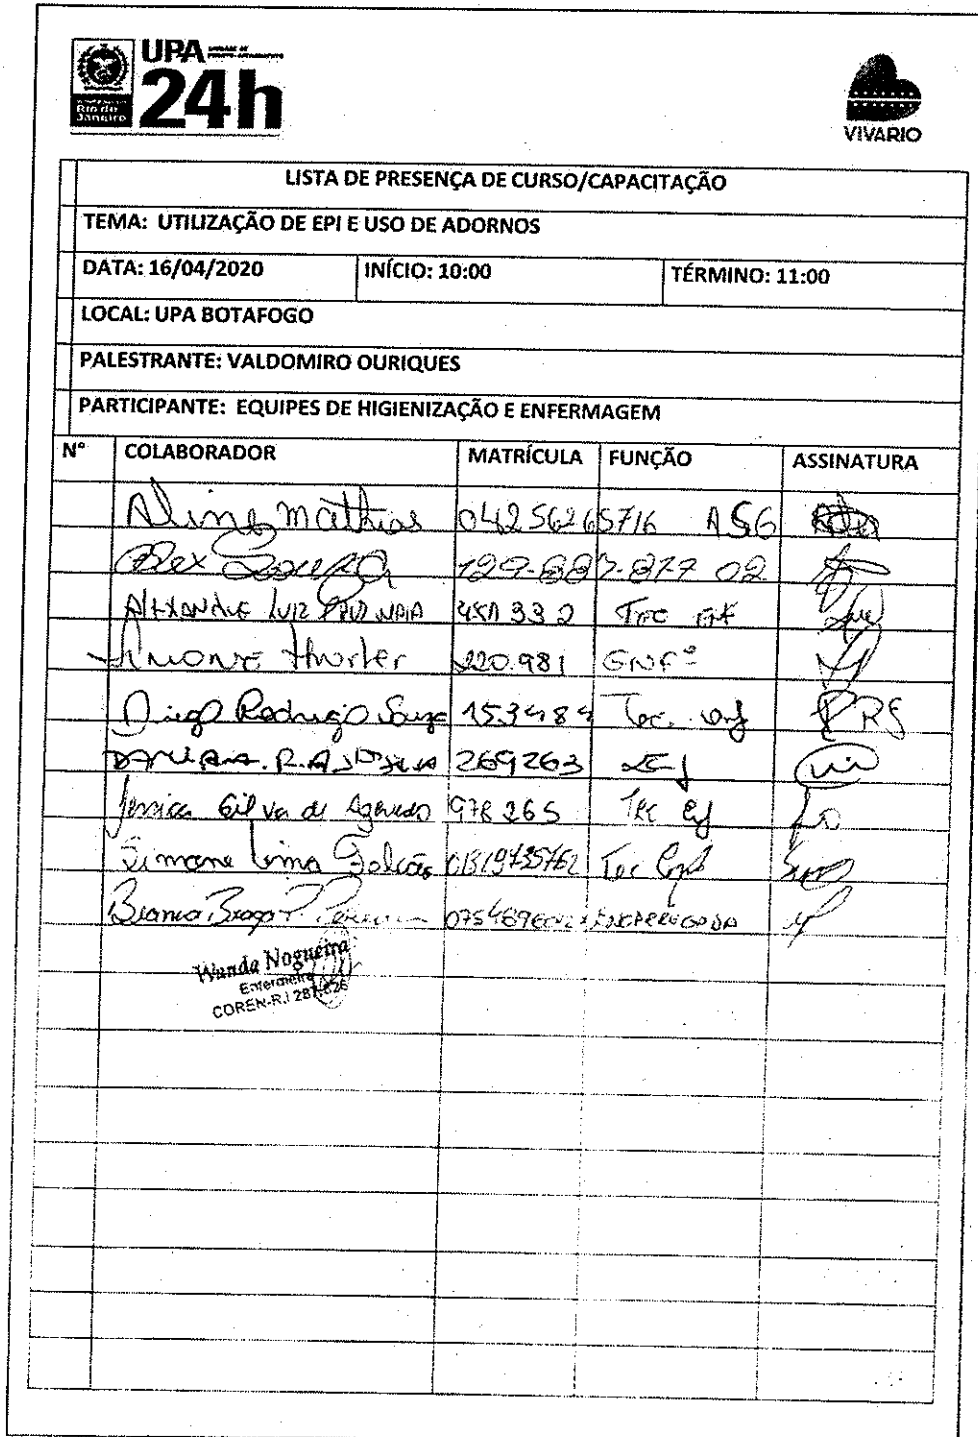 UPA UNIDADE DE PRONTO ATENDIMENTO
24h
Rio de Janeiro
VIVARIO
LISTA DE PRESENÇA DE CURSO/CAPACITAÇÃO
TEMA: UTILIZAÇÃO DE EPI E USO DE ADORNOS
DATA: 16/04/2020 INÍCIO: 10:00 TÉRMINO: 11:00
LOCAL: UPA BOTAFOGO
PALESTRANTE: VALDOMIRO OURIQUES
PARTICIPANTE: EQUIPES DE HIGIENIZAÇÃO E ENFERMAGEM
N° COLABORADOR MATRÍCULA FUNÇÃO ASSINATURA
Aline Mathias 04256265716 ASG
Alex Souza 129.887.877 02
ALEXANDRE LUIZ
Simone Thurler 220.981 ENFª
Diego Rodrigo Souza 153484 Tec. enf DRS
269263
Jessica Silva de Azevedo 978265 Tec Enf
Simone Lima Falcão 01319735762 Tec Enf
Bianca Braga P. Pereira ENCARREGADA
Wanda Nogueira
Enfermeira
COREN-RJ 287.626